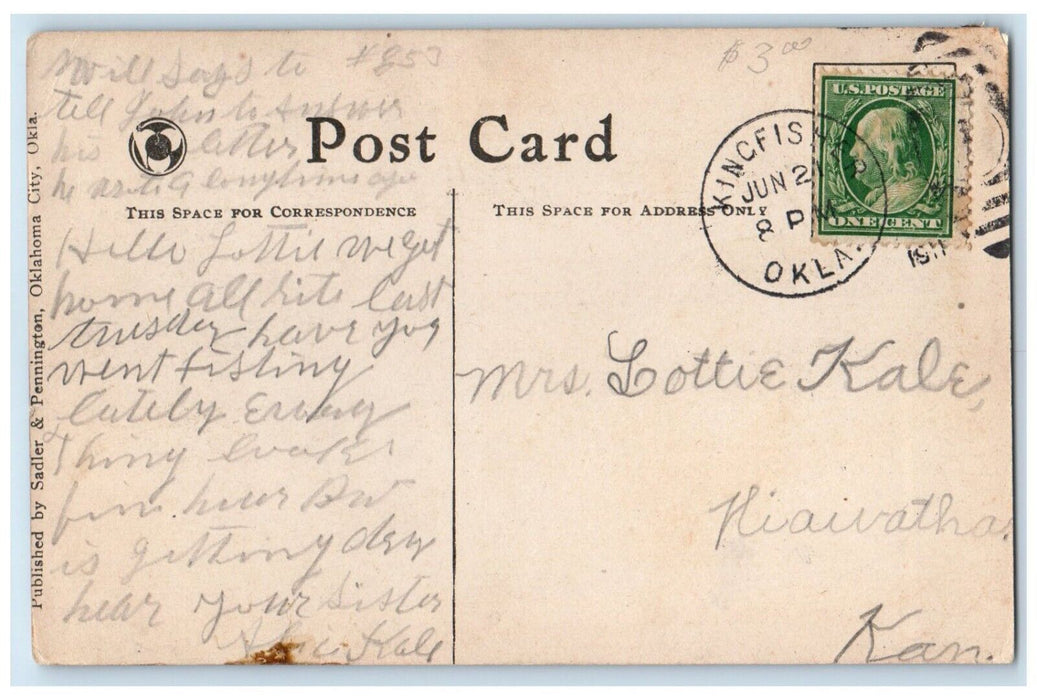 Will Says to
tell John to answer
his letter
he wrote a long time ago
$3.00
U.S. POSTAGE
ONE CENT
KINGFISHER
JUN 2
8 PM
OKLA.
191
Post Card
THIS SPACE FOR CORRESPONDENCE
THIS SPACE FOR ADDRESS ONLY
Published by Sadler & Pennington, Oklahoma City, Okla.
Hello Lottie we got
home all rite last
tuesday have you
went fishing
lately Every
Thing looks
fine hear But
is getting dry
hear your Sister
Kale
Mrs. Lottie Kale,
Hiawatha
Kan.